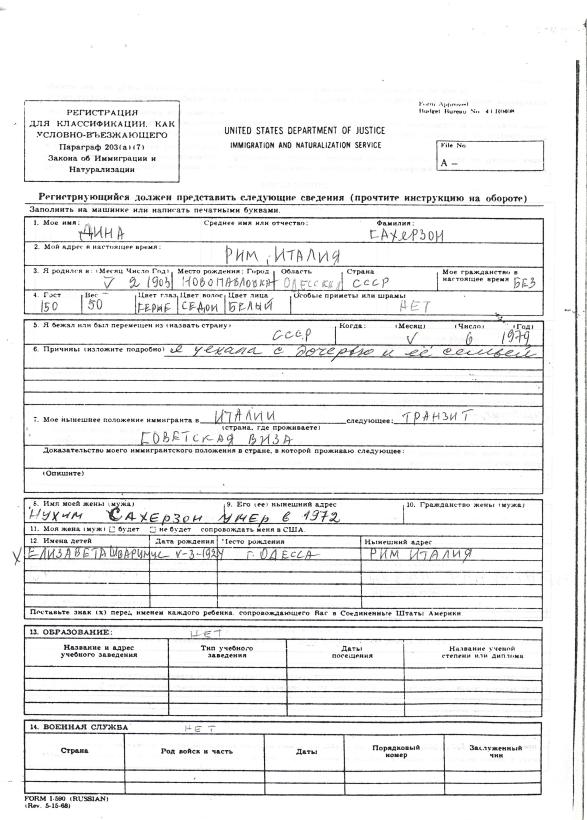 Form Approved
Budget Bureau No.
РЕГИСТРАЦИЯ
ДЛЯ КЛАССИФИКАЦИИ, КАК
УСЛОВНО-ВЪЕЗЖАЮЩЕГО
Параграф 203(а)(7)
Закона об Иммиграции и
Натурализации
UNITED STATES DEPARTMENT OF JUSTICE
IMMIGRATION AND NATURALIZATION SERVICE
File No
A –
Регистриующийся должен представить следующие сведения (прочтите инструкцию на обороте)
Заполнить на машинке или написать печатными буквами.
1. Мое имя: Среднее имя или отчество: Фамилия:
ДИНА САХЕРЗОН
2. Мой адрес в настоящее время:
РИМ, ИТАЛИЯ
3. Я родился в: (Месяц Число Год) Место рождения: Город Область Страна Мое гражданство в настоящее время БЕЗ
V 2 1903 НОВОПАВЛОВКА ОДЕССКАЯ СССР
4. Рост Вес Цвет глаз Цвет волос Цвет лица Особые приметы или шрамы
150 50 СЕДОЙ БЕЛЫЙ НЕТ
5. Я бежал или был перемещен из (назвать страну) Когда: (Месяц) (Число) (Год)
СССР V 6 1979
6. Причины (изложите подробно) я уехала с дочерью и её семьей
7. Мое нынешнее положение иммигранта в ИТАЛИИ следующее: ТРАНЗИТ
(страна, где проживаете)
СОВЕТСКАЯ ВИЗА
Доказательство моего иммигрантского положения в стране, в которой проживаю следующее:
(Опишите)
8. Имя моей жены (мужа) 9. Его (ее) нынешний адрес 10. Гражданство жены (мужа)
НУХИМ САХЕРЗОН УМЕР в 1972
11. Моя жена (муж) □ будет □ не будет сопровождать меня в США.
12. Имена детей Дата рождения Место рождения Нынешний адрес
X ЕЛИЗАВЕТА V-3-1924 г. ОДЕССА РИМ ИТАЛИЯ
Поставьте знак (x) перед именем каждого ребенка, сопровождающего Вас в Соединенные Штаты Америки
13. ОБРАЗОВАНИЕ: НЕТ
Название и адрес учебного заведения Тип учебного заведения Даты посещения Название ученой степени или диплома
14. ВОЕННАЯ СЛУЖБА НЕТ
Страна Род войск и часть Даты Порядковый номер Заслуженный чин
FORM I-590 (RUSSIAN)
(Rev. 5-15-68)